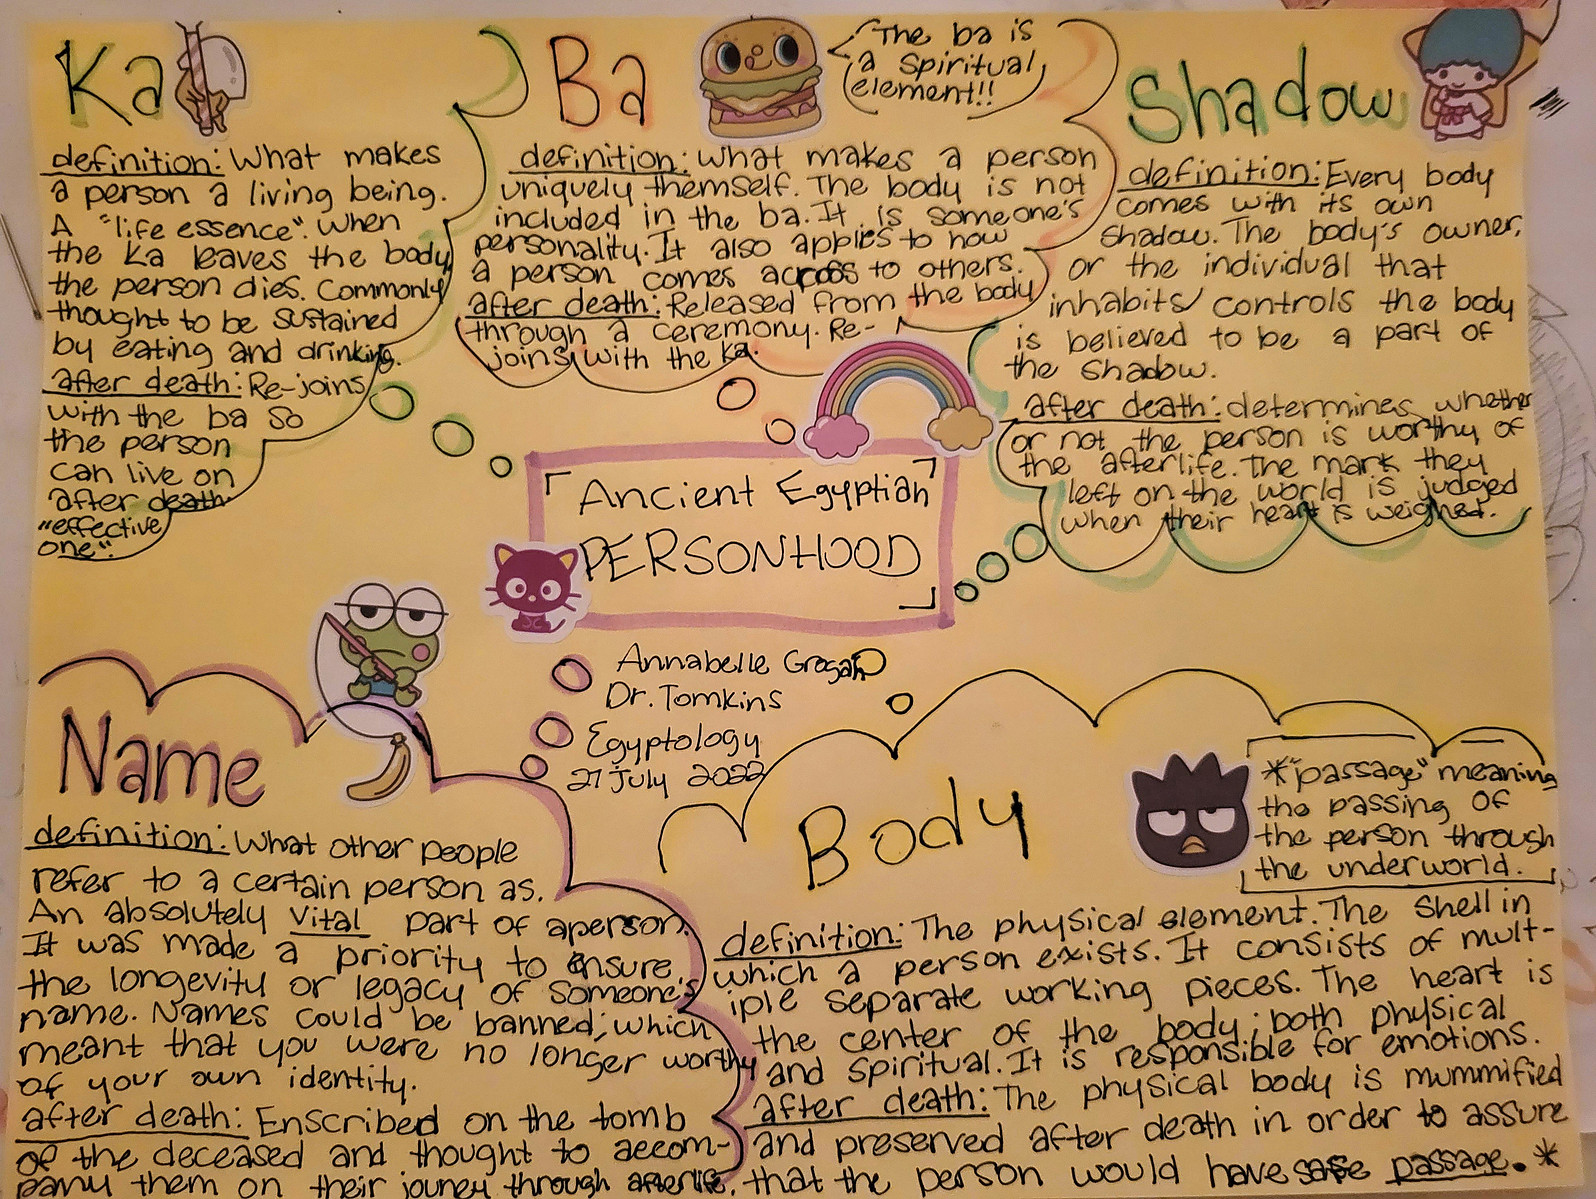 Ka
definition: What makes
a person a living being.
A "life essence". When
the Ka leaves the body
the person dies. Commonly
thought to be sustained
by eating and drinking.
after death: Re-joins
with the ba so
the person
can live on
after death
"effective
one".
Ba
The ba is
a spiritual
element!!
definition: What makes a person
uniquely themself. The body is not
included in the ba. It is someone's
personality. It also applies to how
a person comes across to others.
after death: Released from the body
through a ceremony. Re-
joins with the ka.
Shadow
definition: Every body
comes with its own
shadow. The body's owner,
or the individual that
inhabits controls the body
is believed to be a part of
the shadow.
after death: determines whether
or not the person is worthy of
the afterlife. The mark they
left on the world is judged
when their heart is weighed.
Ancient Egyptian
PERSONHOOD
Annabelle Grogan
Dr. Tomkins
Egyptology
27 July 2022
Name
definition: What other people
refer to a certain person as.
An absolutely vital part of a person.
It was made a priority to ensure
the longevity or legacy of someone's
name. Names could be banned; which
meant that you were no longer worthy
of your own identity.
after death: Enscribed on the tomb
of the deceased and thought to accom-
pany them on their jouney through afterlife.
Body
*"passage" meaning
the passing of
the person through
the underworld.
definition: The physical element. The shell in
which a person exists. It consists of mult-
iple separate working pieces. The heart is
the center of the body; both physical
and spiritual. It is responsible for emotions.
after death: The physical body is mummified
and preserved after death in order to assure
that the person would have safe passage. *